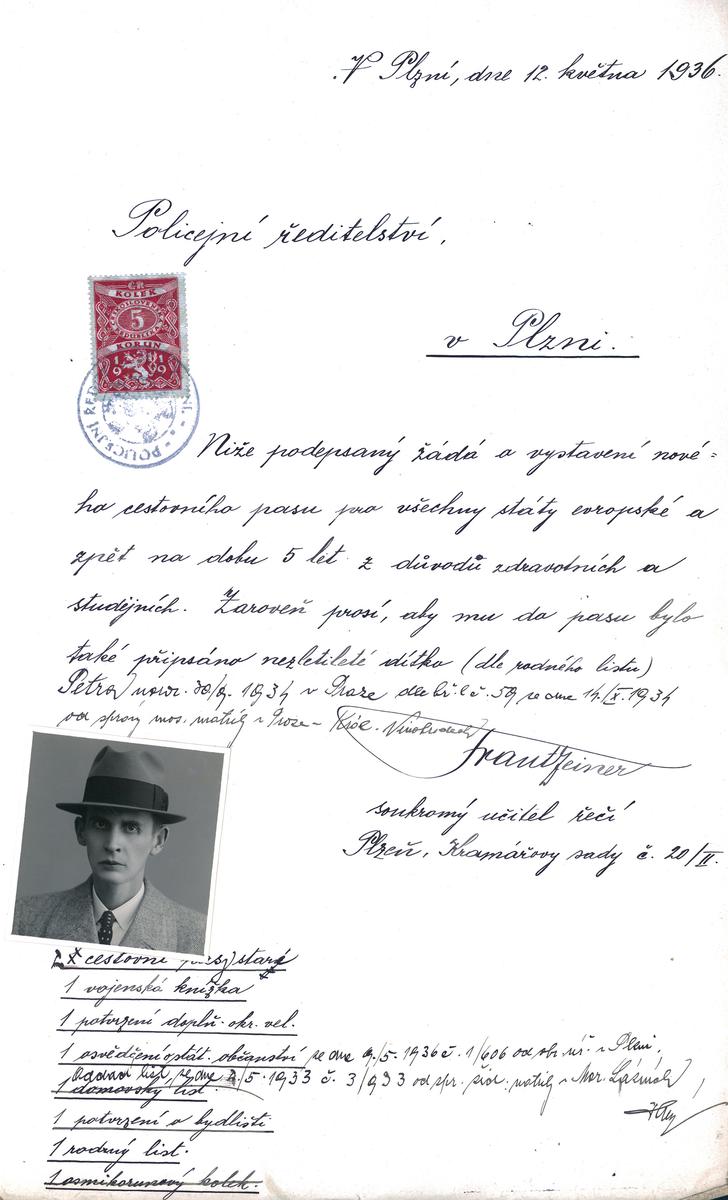 V Plzni, dne 12. května 1936.
Policejní ředitelství,
ČR
KOLEK
5
KORUN
1919
POLICEJNÍ ŘED NÍ
v Plzni.
Níže podepsaný žádá o vystavení nové=
ho cestovního pasu pro všechny státy evropské a
zpět na dobu 5 let z důvodů zdravotních a
studijních. Zároveň prosí, aby mu do pasu bylo
také připsáno nezletileté dítko (dle rodného listu)
Petra naroz. 30/9. 1934 v Praze dle č. 59 ze dne 14./IX. 1934
od správy mos. matrik v Praze - Král. Vinohradech
Frant Zeiner
soukromý učitel řečí
Plzeň, Kramářovy sady č. 20/II.
cestovní starý
1 vojenská knížka
1 potvrzení doplň. okr. vel.
1 osvědčení o stát. občanství ze dne 9./5. 1936 č. 1/606 od ob. úř. v Plzni.
Oddací list ze dne /5. 1933 č. 3/933 od spr. žid. matrik v Mor.
1 domovský list
1 potvrzení o bydlišti
1 rodný list.
1 osmikorunový kolek.